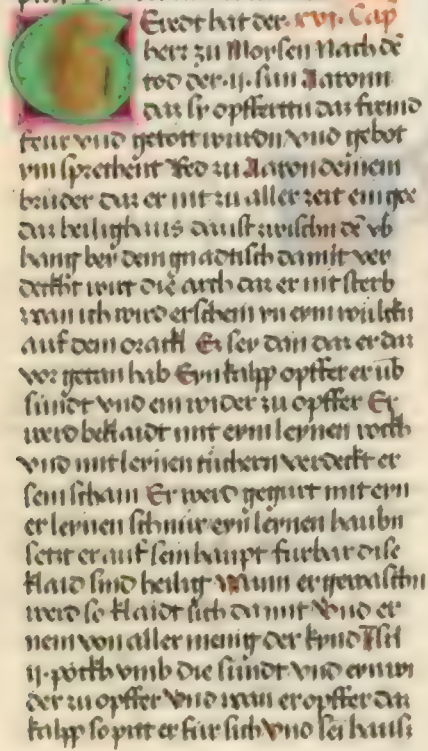 Geredt hat der · xvi · Cap
herr zu Moysen Nach dē
tod der · ii · sun Aaronn
daz sy opfferttn daz fremd
feur vnd getott wurdn vnd gebot
ym sprechent Red zu Aaron deinem
bruder daz er nit zu aller zeit ein gee
daz heilighaus daz ist zwischn dē vb
hang bey dem gnadtisch damit ver
deckht wirt die arch daz er nit sterb
wan ich wird erschein yn eym wulckn
auf dem orackl Er sey dan daz er daz
vor getan hab Eyn kalpp opffer er vb
sundt vnd ein wider zu opffer Er
werd beklaidt mit eym leynen rockh
vnd mit leynen tuchern verdeckt er
sein scham Er werd gegurt mit eyn
er leynen schnur eyn leynen haubn
setz er auf sein haupt furbar dise
klaid sind heilig Wann er gewaschn
werd so klaidt sich damit Vnd er
nem von aller menig der kynd Isrl
ii · pockh vmb die sundt vnd eyn wi
der zu opffer Vnd wan er opffer daz
kalpp so pitt er für sich Vnd sei hauss